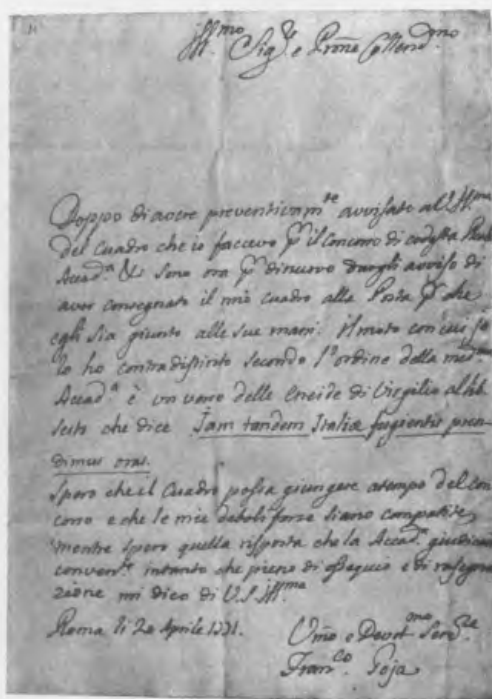 Jll.mo Sig.e e Prone Collend.mo
Doppo di avere preventivam.te avvisato a V.S. Jll.ma
del Cuadro che io faccevo p. il Concorso di codesta Reale
Accad.a sono ora p. di nuovo dargli avviso di
aver consegnato il mio cuadro alla Posta p. che
egli sia giunto alle sue mani. Il moto con cui io
lo ho contradistinto secondo l'ordine della med.ma
Accad.a è un verso delle Eneide di Virgilio al lib.
Sesto che dice Jam tandem Italiæ fugientis pren-
dimus oras.
Spero che il Cuadro possa giungere a tempo del con
corso e che le mie deboli forze siano compatite,
mentre spero quella risposta che la Accad.a giudicara
convent.e intanto che pieno di ossequio e di rasegna
zione mi dico di V.S. Jll.ma
Roma li 20 Aprile 1771.
Vmo e Devot.mo Serv.re
Fran.co Goja